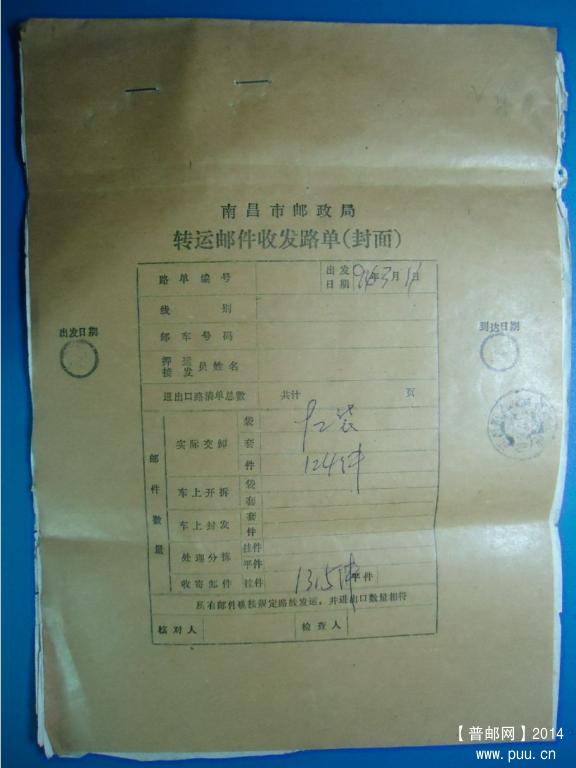 南昌市邮政局
转运邮件收发路单(封面)
路单编号 出发日期 年3月 日
线别
邮车号码
押运接发员姓名
进出口路清单总数 共计 页
邮件数量
实际交卸 袋 套 件
124件
车上开拆 袋 套
车上封发 套 件
处理分拣 挂件 平件
收寄邮件 挂件 1315件 平件
所有邮件确按规定路线发运，并进出口数量相符
核对人 检查人
出发日期
到达日期
【普邮网】2014
www.puu.cn